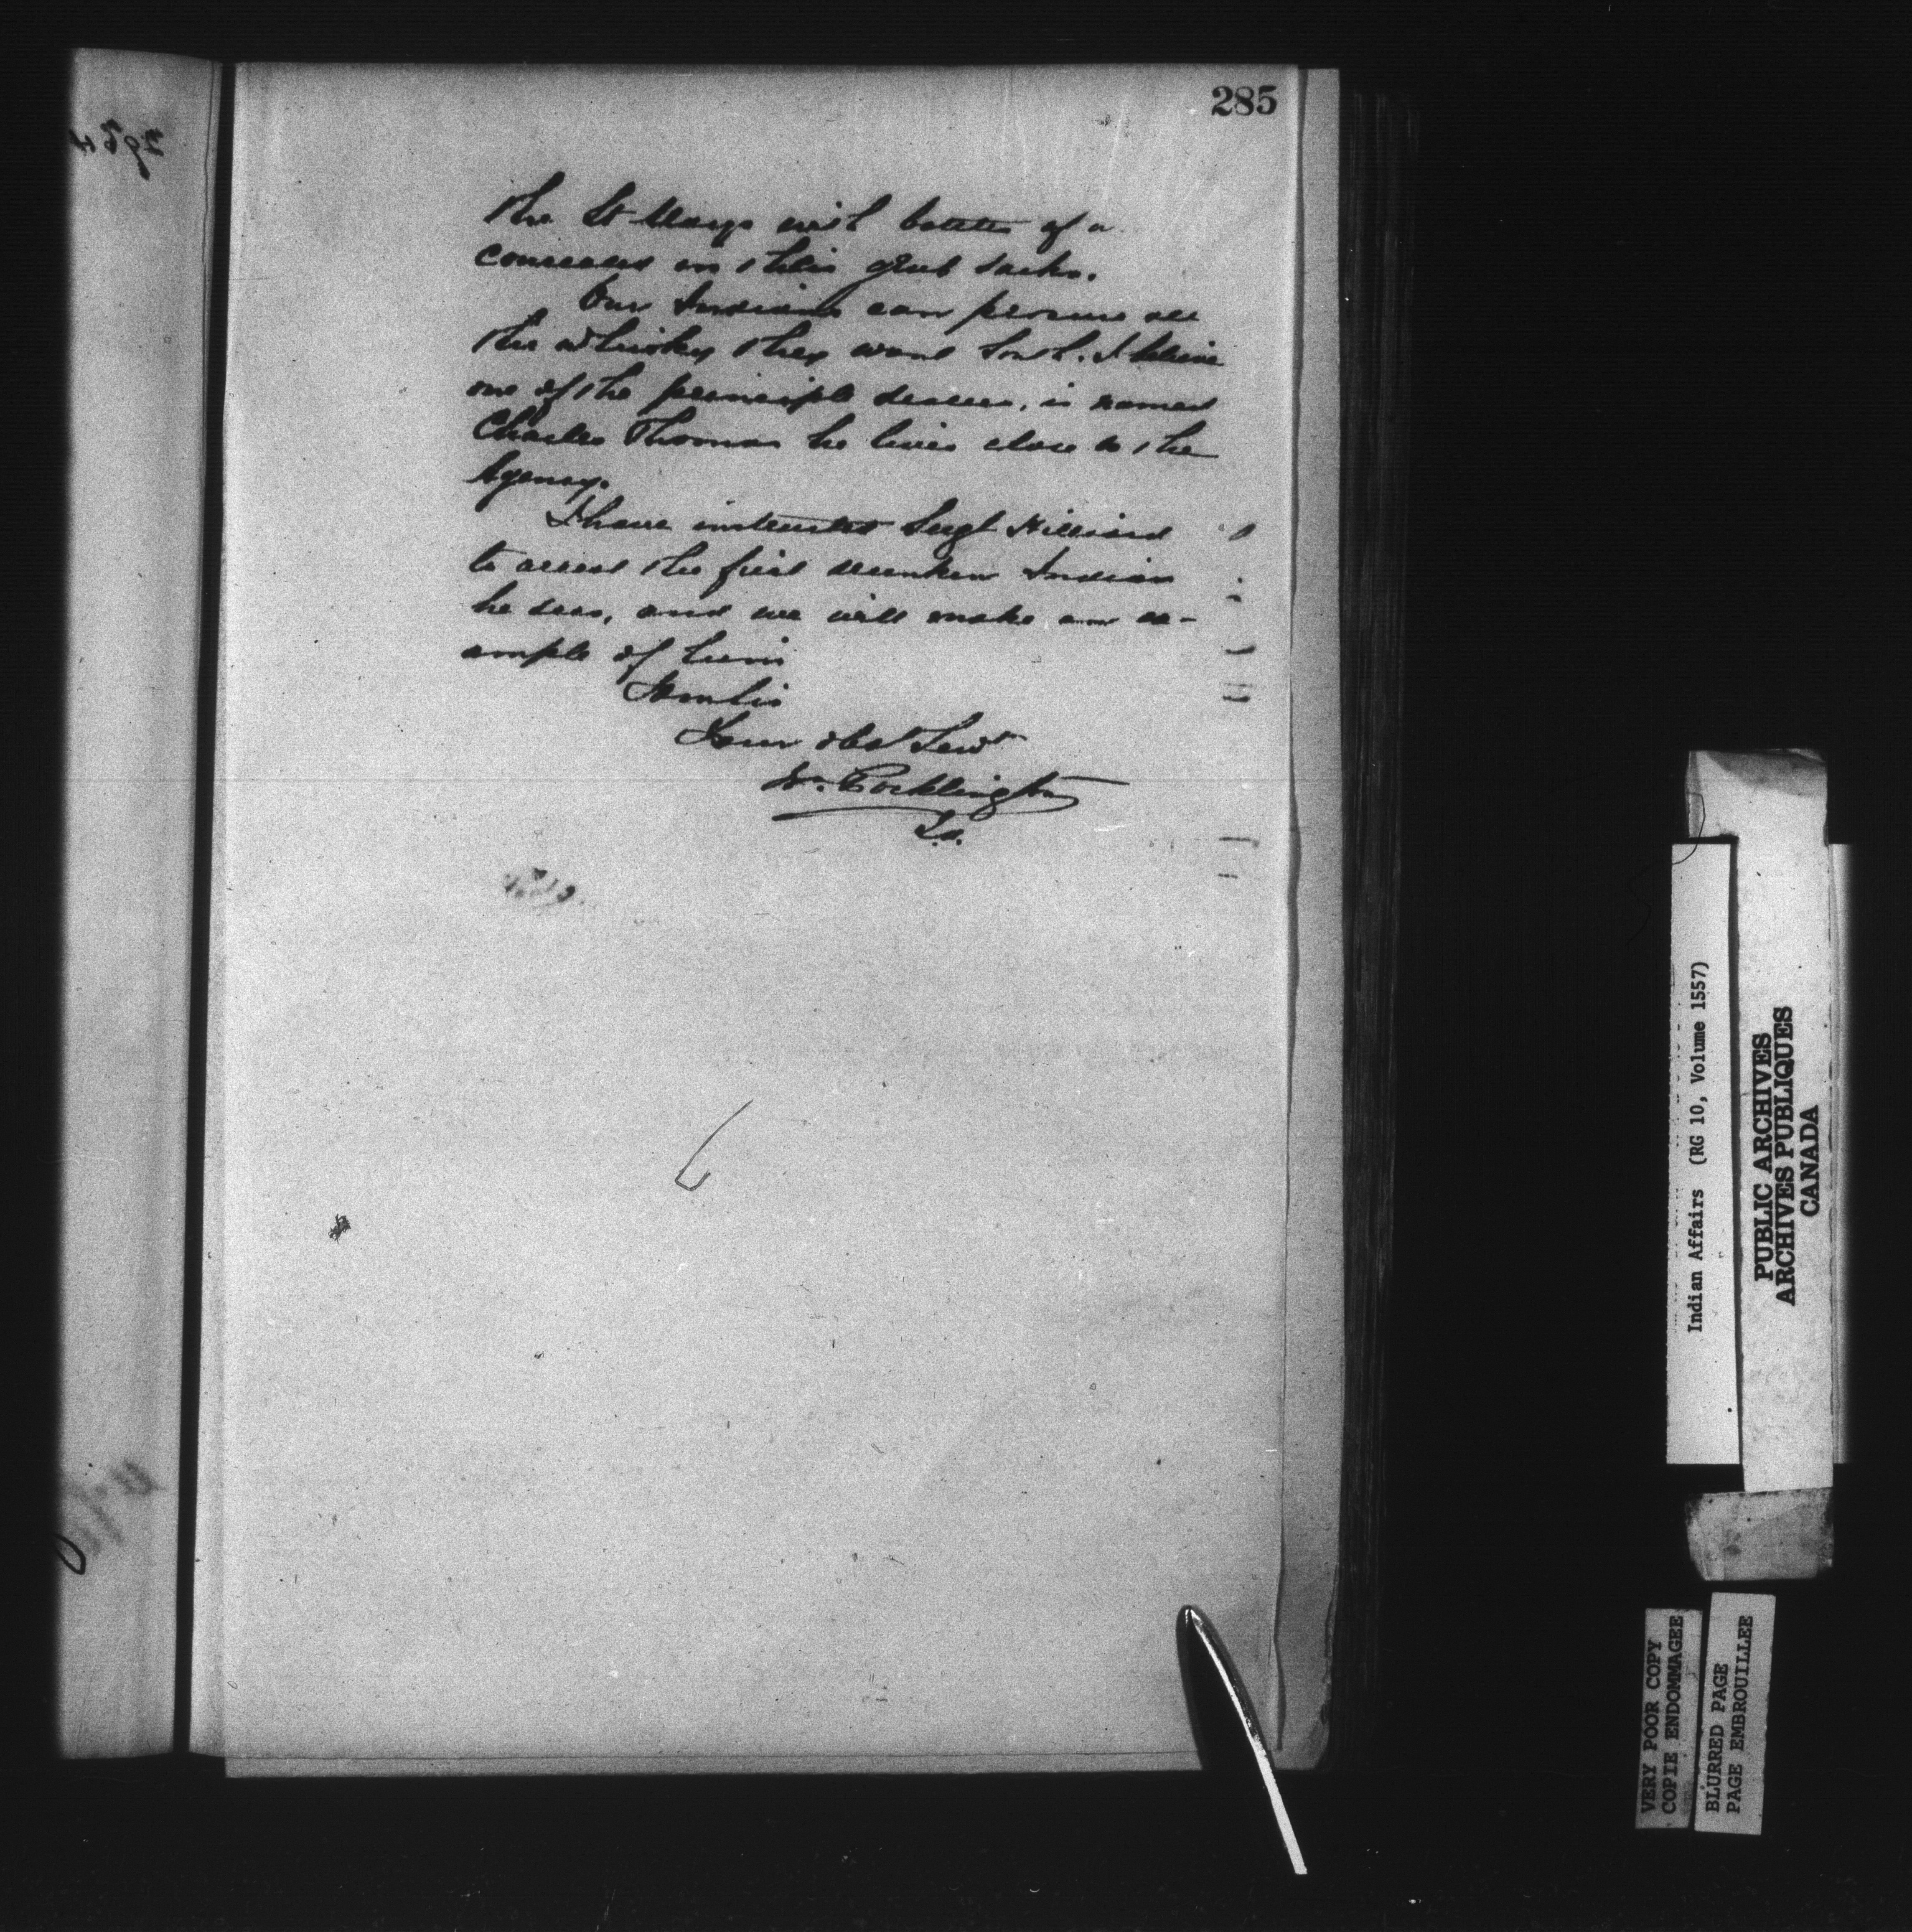 285
the St Marys with bottles of a
concealed in their grub sacks.
Our Indians can procure all
the whisky they want South. I believe
one of the principle dealers, is named
Charles Thomas he lives close to the
Agency.
I have instructed Sergt Hilliard
to arrest the first drunken Indian
he sees, and we will make an ex-
ample of him
Your obt Servt
Wm. Pocklington
I.A.
Indian Affairs (RG 10, Volume 1557)
PUBLIC ARCHIVES
ARCHIVES PUBLIQUES
CANADA
VERY POOR COPY
COPIE ENDOMMAGEE
BLURRED PAGE
PAGE EMBROUILLEE